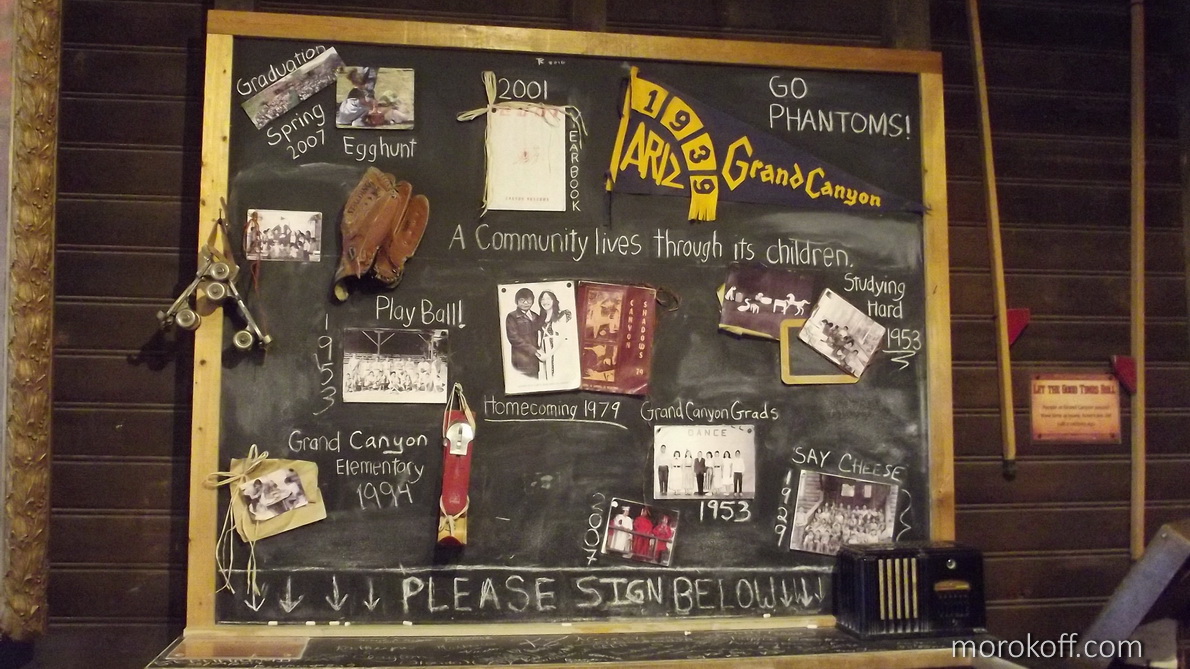 Graduation
Spring
2007
Egghunt
2001
YEARBOOK
1939
ARIZ
Grand Canyon
GO
PHANTOMS!
A Community lives through its children.
Play Ball!
1953
CANYON
SHADOWS
Homecoming 1979
Studying
Hard
1953
Grand Canyon Grads
DANCE
1953
2007
Grand Canyon
Elementary
1994
SAY CHEESE
1929
LET THE GOOD TIMES ROLL
PLEASE SIGN BELOW
morokoff.com